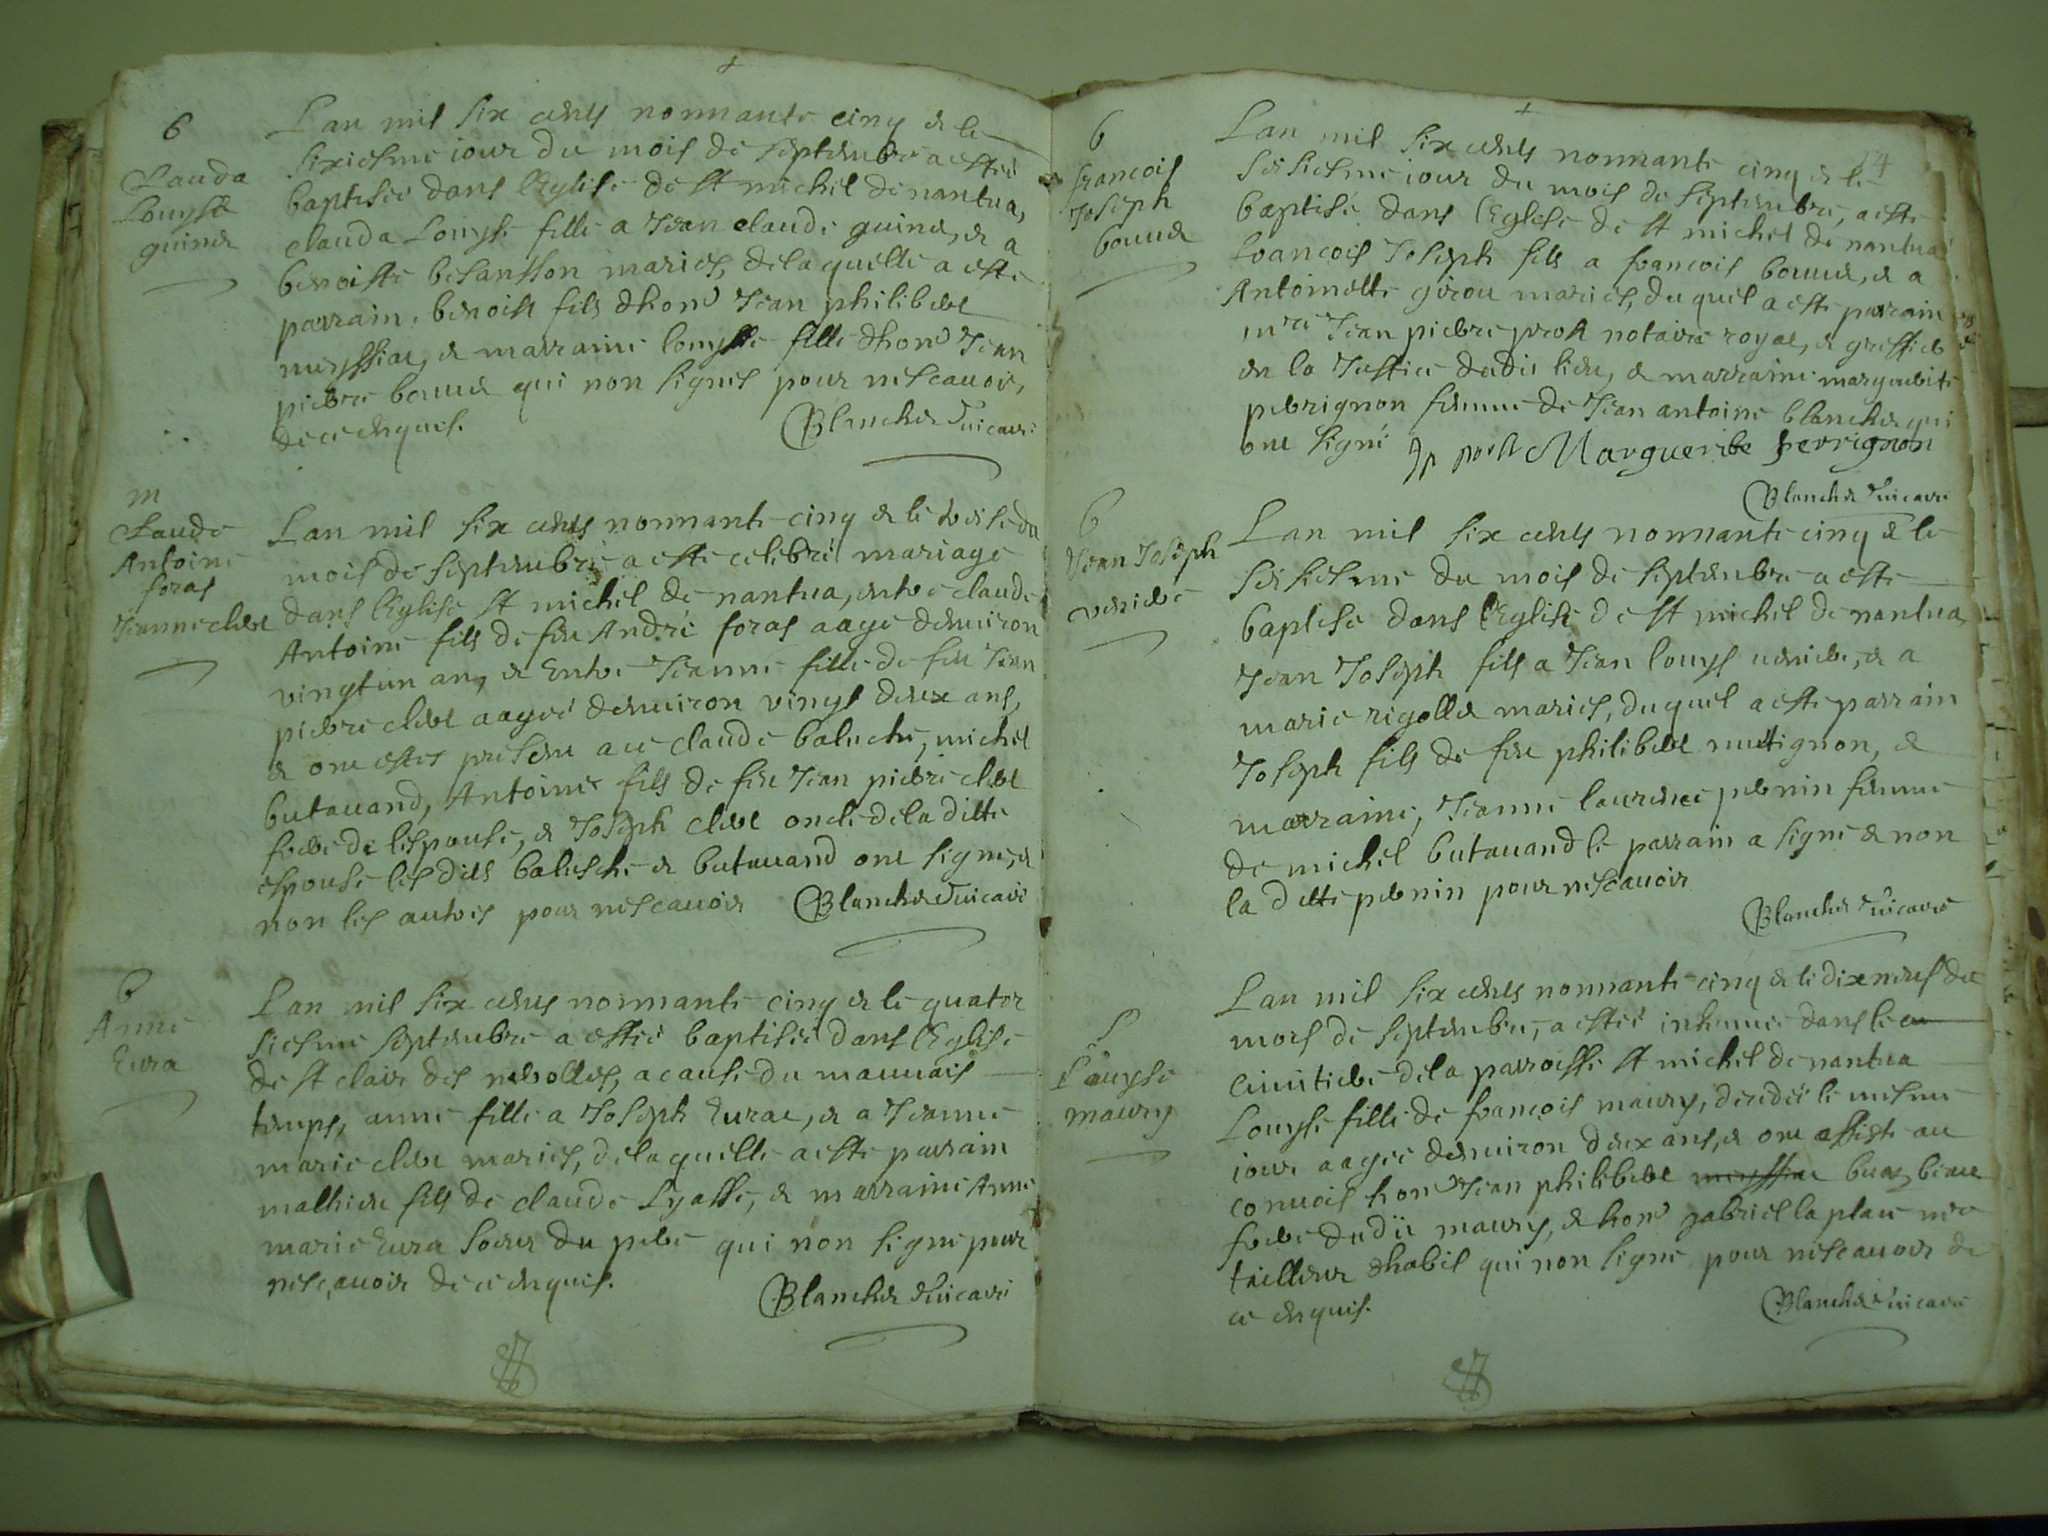 6
Clauda
Louyse
guinet
Lan mil six cents nonnante cinq & le
sixiesme iour du mois de septembre a estée
baptisée dans lEglise de st michel de nantua,
clauda Louyse fille a Jean claude guinet, & a
benoiste besansson mariés, delaquelle a esté
parrain, benoist fils dhon Jean philibert
meyssiat, & marraine louyse fille dhon Jean
pierre bouuet qui non signés pour nescauoir,
de ce enquis.
Blanchet vicaire
m
Claude
Antoine
foras
Jeanne clert
Lan mil six cents nonnante cinq & le treise du
mois de septembre a esté celebré mariage
dans lEglise st michel de nantua, entre claude
Antoine fils de feu André foras aagé denuiron
vingtun an, & Entre Jeanne fille de feu Jean
pierre clert aagée denuiron vingt deux ans,
& ont estés present a ce claude baluche, michel
butauand, Antoine fils de feu Jean pierre clert
frere de lespouse, & Joseph clert oncle de la ditte
espouse les dits balusche & butauand ont signes &
non les autres pour nescauoir Blanchet vicaire
b
Anne
Eura
Lan mil six cents nonnante cinq & le quator
siesme septembre a estée baptisée dans lEglise
de st clair des nerolles, a cause du mauuais
temps, anne fille a Joseph Eurat, & a Jeanne
marie clert mariés, delaquelle a esté parrain
mathieu fils de claude Lyasse, & marraine Anne
marie Eura soeur du pere qui non signe pour
nescauoir de ce enquis.
Blanchet vicaire
6
francois
Joseph
bouuet
14
Lan mil six cents nonnante cinq & le
seisiesme iour du mois de septembre, a esté
baptisé dans lEglise de st michel de nantua
francois Joseph fils a francois bouuet, & a
Antoinette girou mariés, duquel a esté parrain
mre Jean pierre prost notaire royal, & greffier
en la Justice dudit lieu, & marraine marguerite
perrignon femme de Jean antoine blanchet qui
ont signé Jp prost Marguerite perrignon
Blanchet vicaire
b
Jean Joseph
uerniere
Lan mil six cents nonnante cinq & le
seisiesme du mois de septembre a esté
baptisé dans lEglise de st michel de nantua
Jean Joseph fils a Jean louys uernier, & a
marie rigollet mariés, duquel a esté parrain
Joseph fils de feu philibert mettignon, &
marraine, Jeanne laurence pernin femme
de michel butauand le parrain a signé & non
la ditte pernin pour nescauoir
Blanchet vicaire
S
Louyse
maury
Lan mil six cents nonnante cinq & le dix neuf du
mois de septembre, a estée inhumée dans le
cimitiere de la parroisse st michel de nantua
Louyse fille de francois maury, decedée le mesme
iour aagée denuiron deux ans, & ont assisté au
conuois hon Jean philibert beau
frere dudit maury, & hon gabriel la place mre
tailleur dhabit qui non signé pour nescauoir de
ce enquis.
Blanchet vicaire